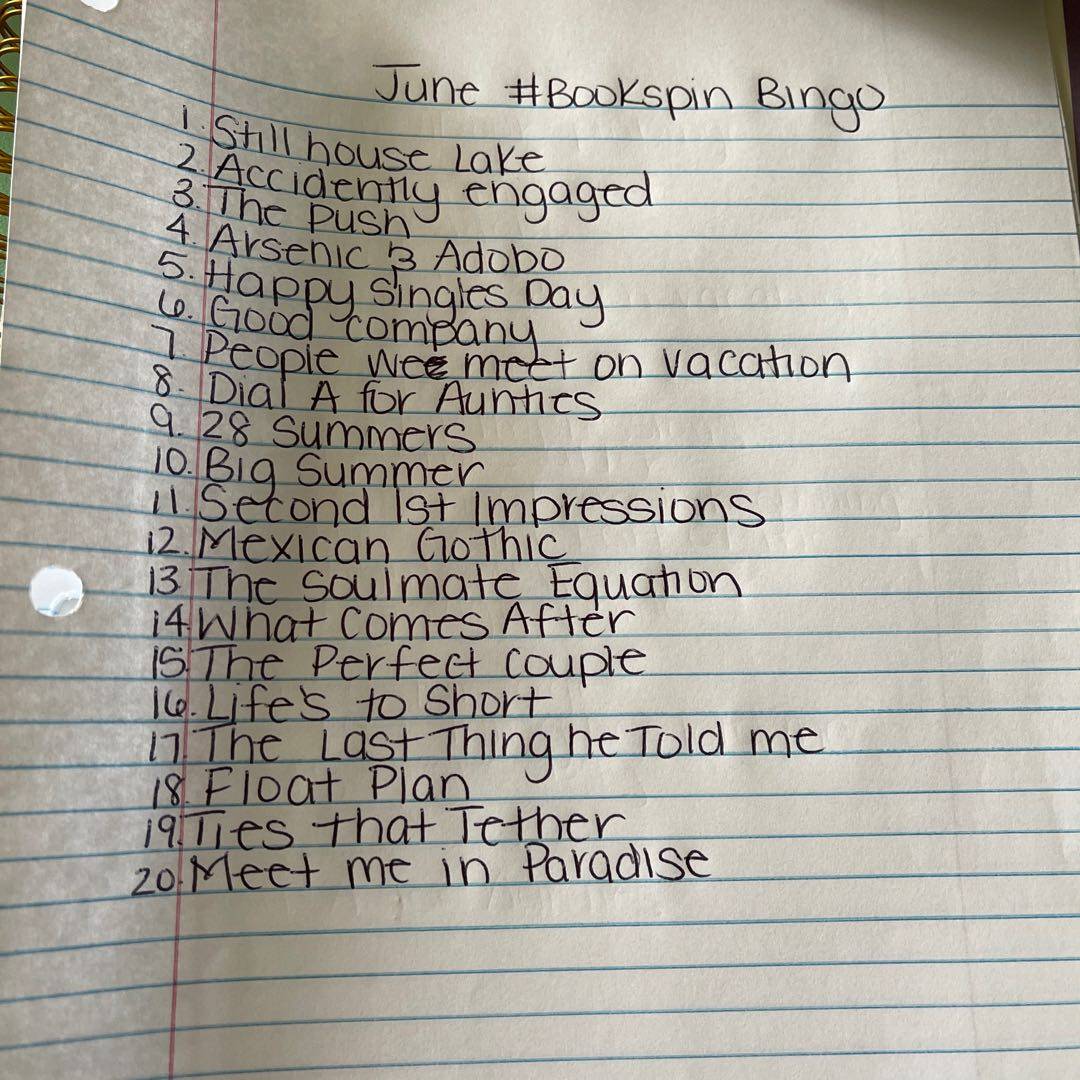 June #Bookspin Bingo
1. Still house Lake
2. Accidently engaged
3. The Push
4. Arsenic & Adobo
5. Happy Singles Day
6. Good company
7. People we meet on vacation
8. Dial A for Aunties
9. 28 Summers
10. Big Summer
11. Second 1st Impressions
12. Mexican Gothic
13. The Soulmate Equation
14. What Comes After
15. The Perfect Couple
16. Life's to Short
17. The Last Thing he Told me
18. Float Plan
19. Ties that Tether
20. Meet me in Paradise